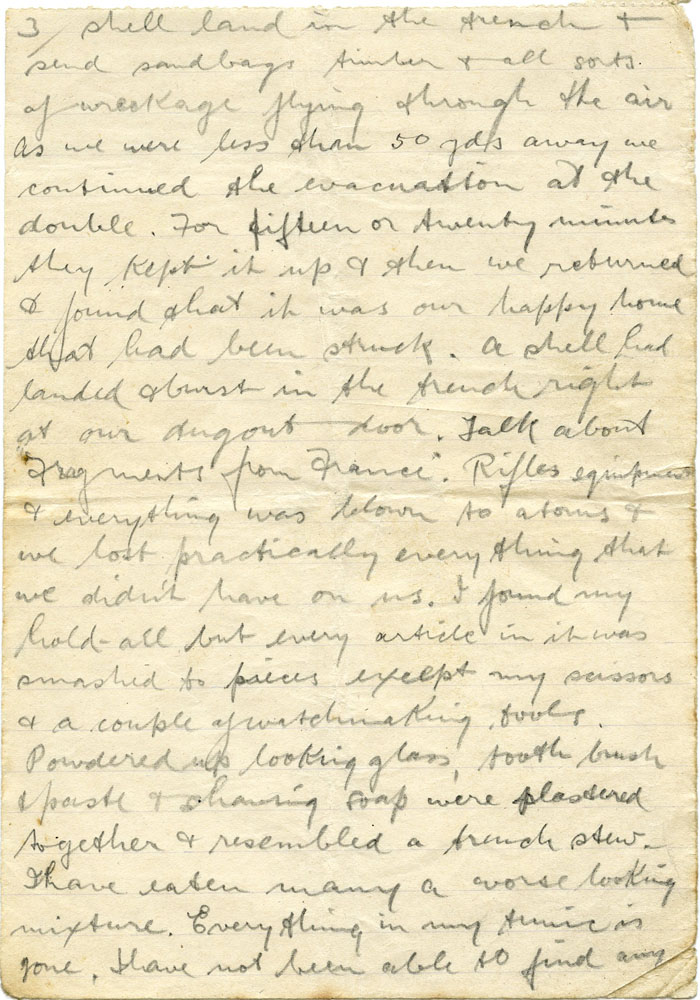 3/ shell land in the trench &
send sandbags timber & all sorts
of wreckage flying through the air
As we were less than 50 yds away we
continued the evacuation at the
double. For fifteen or twenty minutes
they kept it up & then we returned
& found that it was our happy home
that had been struck. A shell had
landed & burst in the trench right
at our dugout door. Talk about
"Fragments from France". Rifles equipment
& everything was blown to atoms &
we lost practically everything that
we didn't have on us. I found my
hold-all but every article in it was
smashed to pieces except my scissors
& a couple of watchmaking tools.
Powdered up looking glass, tooth brush
& paste & shaving soap were plastered
together & resembled a trench stew.
I have eaten many a worse looking
mixture. Everything in my tunic is
gone. I have not been able to find any